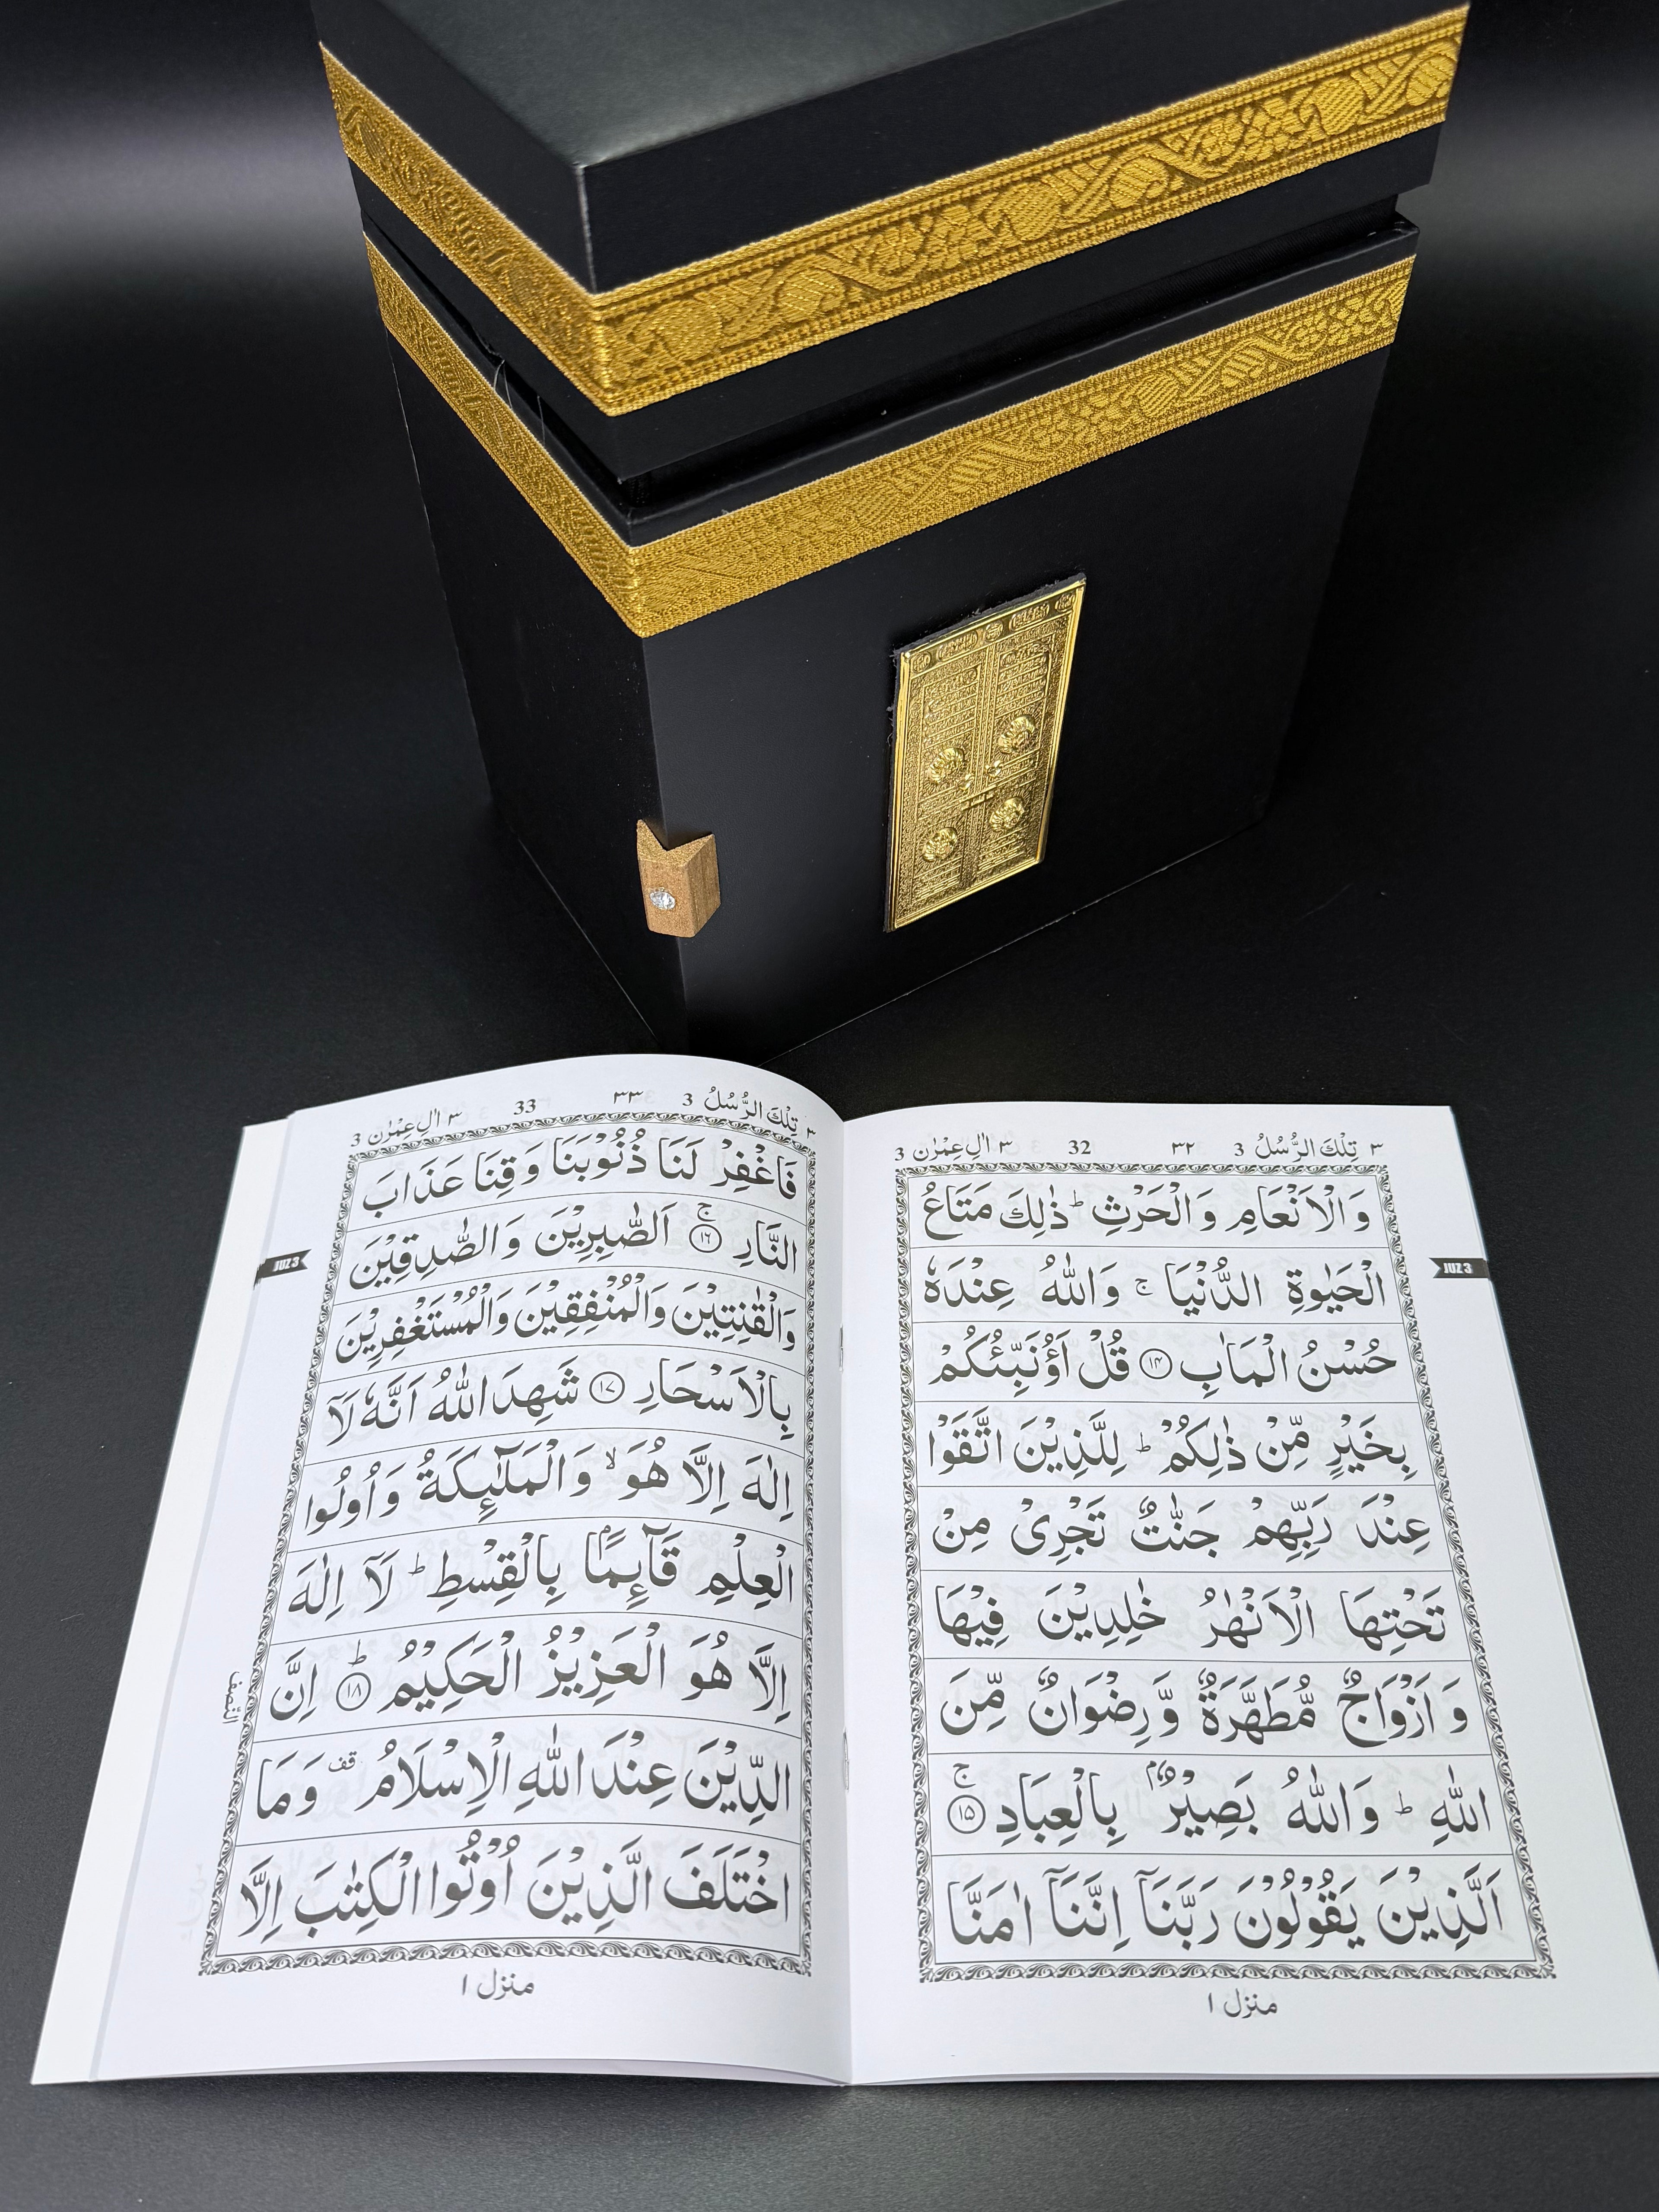 ٣ تِلْكَ الرُّسُلُ 3 ٣٢ 32 ٣ اٰلِ عِمْرٰن 3
وَالْاَنْعَامِ وَالْحَرْثِ ؕ ذٰلِكَ مَتَاعُ
الْحَيٰوةِ الدُّنْيَا ۚ وَاللّٰهُ عِنْدَهٗ
حُسْنُ الْمَاٰبِ ﴿۱۴﴾ قُلْ اَؤُنَبِّئُكُمْ
بِخَيْرٍ مِّنْ ذٰلِكُمْ ؕ لِلَّذِيْنَ اتَّقَوْا
عِنْدَ رَبِّهِمْ جَنّٰتٌ تَجْرِىْ مِنْ
تَحْتِهَا الْاَنْهٰرُ خٰلِدِيْنَ فِيْهَا
وَ اَزْوَاجٌ مُّطَهَّرَةٌ وَّرِضْوَانٌ مِّنَ
اللّٰهِ ؕ وَاللّٰهُ بَصِيْرٌۢ بِالْعِبَادِ ۚ﴿۱۵﴾
اَلَّذِيْنَ يَقُوْلُوْنَ رَبَّنَاۤ اِنَّنَاۤ اٰمَنَّا
منزل ١
JUZ 3
٣ تِلْكَ الرُّسُلُ 3 ٣٣ 33 ٣ اٰلِ عِمْرٰن 3
فَاغْفِرْ لَنَا ذُنُوْبَنَا وَقِنَا عَذَابَ
النَّارِ ۚ﴿۱۶﴾ اَلصّٰبِرِيْنَ وَالصّٰدِقِيْنَ
وَالْقٰنِتِيْنَ وَالْمُنْفِقِيْنَ وَالْمُسْتَغْفِرِيْنَ
بِالْاَسْحَارِ ﴿۱۷﴾ شَهِدَ اللّٰهُ اَنَّهٗ لَاۤ
اِلٰهَ اِلَّا هُوَ ۙ وَالْمَلٰٓئِكَةُ وَاُولُوا
الْعِلْمِ قَآئِمًاۢ بِالْقِسْطِ ؕ لَاۤ اِلٰهَ
اِلَّا هُوَ الْعَزِيْزُ الْحَكِيْمُ ؕ﴿۱۸﴾ اِنَّ
الدِّيْنَ عِنْدَ اللّٰهِ الْاِسْلَامُ قف وَمَا
اخْتَلَفَ الَّذِيْنَ اُوْتُوا الْكِتٰبَ اِلَّا
منزل ١
JUZ 3
النصف